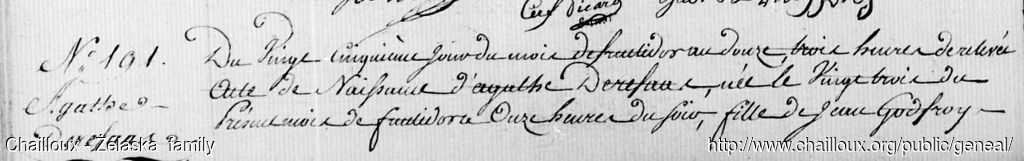 N° 191.
Agathe
Derefaus
Du Vingt cinquième jour du mois de fructidor an douze, trois heures de relevée
Acte de Naissance d'agathe Derefaus, née le Vingt trois du
Présent mois de fructidor a Onze heures du soir, fille de Jean Godfroy
Chailloux - Zelaska family
http://www.chailloux.org/public/geneal/